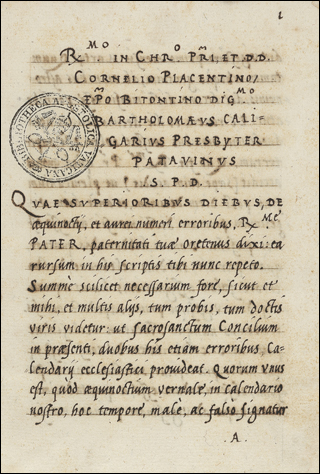 1
R.MO IN CHR.O PRI, ET D.D.
CORNELIO PLACENTINO,
EPO BITONTINO DIG.MO
BARTHOLOMÆUS CALI-
GARIUS PRESBYTER
PATAVINUS
S. P. D.
BIBLIOTHECA APOSTOLICA VATICANA
QUAE SUPERIORIBUS DIEBUS, DE
æquinoctij, et aurei numeri erroribus, R.Me
PATER, paternitati tuæ oretenus dixi: ea
rursum in his scriptis tibi nunc repeto.
Summe scilicet necessarium fore, sicut et
mihi, et multis alijs, tum probis, tum doctis
viris videtur: ut sacrosanctum Concilium
in præsenti, duobus his etiam erroribus, Ca-
lendarij ecclesiastici provideat. Quorum unus
est, quòd æquinoctum vernale, in calendario
nostro, hoc tempore, male, ac falso signatur
A.